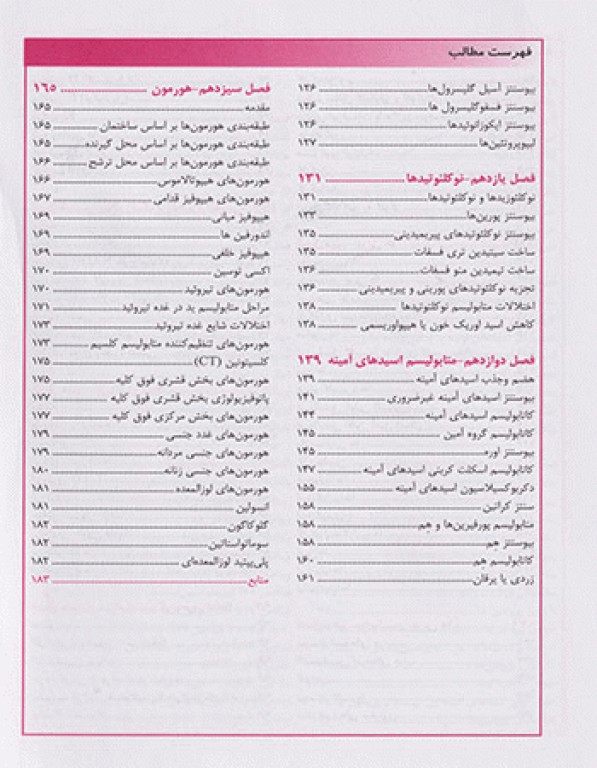 فهرست مطالب
بیوسنتز آسیل گلیسرول‌ها ۱۲۶
بیوسنتز فسفوگلیسرول ها ۱۲۶
بیوسنتز ایکوزانوئیدها ۱۲۶
لیپوپروتئین‌ها ۱۲۷
فصل یازدهم-نوکلئوتیدها ۱۳۱
نوکلئوزیدها و نوکلئوتیدها ۱۳۱
بیوسنتز پورین‌ها ۱۳۳
بیوسنتز نوکلئوتیدهای پیریمیدینی ۱۳۵
ساخت سیتیدین تری فسفات ۱۳۵
ساخت تیمیدین منو فسفات ۱۳۶
تجزیه نوکلئوتیدهای پورینی و پیریمیدینی ۱۳۶
اختلالات متابولیسم نوکلئوتیدها ۱۳۸
کاهش اسید اوریک خون یا هیپواوریسمی ۱۳۸
فصل دوازدهم-متابولیسم اسیدهای آمینه ۱۳۹
هضم وجذب اسیدهای آمینه ۱۳۹
بیوسنتز اسیدهای آمینه غیرضروری ۱۴۱
کاتابولیسم اسیدهای آمینه ۱۴۴
کاتابولیسم گروه آمین ۱۴۵
بیوسنتز اوره ۱۴۵
کاتابولیسم اسکلت کربنی اسیدهای آمینه ۱۴۷
دکربوکسیلاسیون اسیدهای آمینه ۱۵۵
سنتز کراتین ۱۵۸
متابولیسم پورفیرین‌ها و هِم ۱۵۸
بیوسنتز هِم ۱۵۸
کاتابولیسم هِم ۱۶۰
زردی یا یرقان ۱۶۱
فصل سیزدهم-هورمون ۱۶۵
مقدمه ۱۶۵
طبقه‌بندی هورمون‌ها بر اساس ساختمان ۱۶۵
طبقه‌بندی هورمون‌ها بر اساس محل گیرنده ۱۶۵
طبقه‌بندی هورمون‌ها بر اساس محل ترشح ۱۶۶
هورمون‌های هیپوتالاموس ۱۶۶
هورمون‌های هیپوفیز قدامی ۱۶۷
هیپوفیز میانی ۱۶۹
اندورفین ها ۱۶۹
هیپوفیز خلفی ۱۶۹
اکسی توسین ۱۷۰
هورمون‌های تیروئید ۱۷۰
مراحل متابولیسم ید در غده تیروئید ۱۷۱
اختلالات شایع غده تیروئید ۱۷۳
هورمون‌های تنظیم‌کننده متابولیسم کلسیم ۱۷۳
کلسیتونین (CT) ۱۷۵
هورمون‌های بخش قشری فوق کلیه ۱۷۵
پاتوفیزیولوژی بخش قشری فوق کلیه ۱۷۷
هورمون‌های بخش مرکزی فوق کلیه ۱۷۷
هورمون‌های غدد جنسی ۱۷۹
هورمون‌های جنسی مردانه ۱۷۹
هورمون‌های جنسی زنانه ۱۸۰
هورمون‌های لوزالمعده ۱۸۱
انسولین ۱۸۱
گلوکاگون ۱۸۲
سوماتواستاتین ۱۸۲
پلی‌پپتید لوزالمعده‌ای ۱۸۲
منابع ۱۸۳